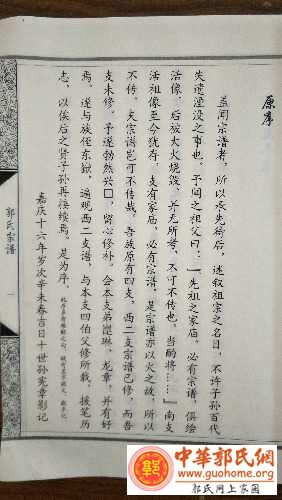 原序
盖闻宗谱者，所以承先待后，述叙祖宗之名目，不许子孙百代
失遗湮没之事也。不闻之祖父曰：“先祖之家庙，必有宗谱，俱绘
活像，后被大火烧毁，并无所考，不可不传也，当酌将……”南支
活祖像至今犹存，支有家庙，必有宗谱，是宗谱亦以火之故，所以
不传。夫宗谱岂可不传哉。吾族原有四支，西二支宗谱已修，而吾
支未修。予遂勃然兴□，留心修补。会本支弟崑琳、龙章，并有好
焉，遂与族侄东嶽，遍观西二支谱，与本支四伯父修所载，援笔历
志，以俟后之贤子孙再续焉。是为序。
嘉庆十六年岁次辛未春吉日十世孙宪章彭记
郭氏宗谱
一
中華郭氏網
www.guohome.org
郭氏网上家园